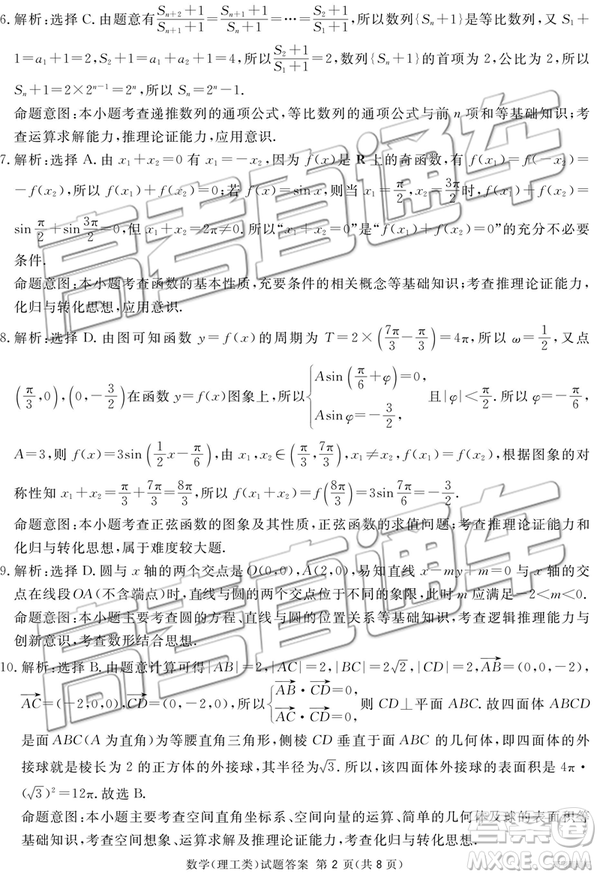 6. 解析:选择 C. 由题意有 \frac{S_{n+2}+1}{S_{n+1}+1}=\frac{S_{n+1}+1}{S_n+1}=…=\frac{S_2+1}{S_1+1}, 所以数列{S_n+1}是等比数列. 又 S_1
+1=a_1+1=2, S_2+1=a_1+a_2+1=4, 所以\frac{S_2+1}{S_1+1}=2, 数列{S_n+1}的首项为 2, 公比为 2, 所以
S_n+1=2×2^{n-1}=2^n, 所以 S_n=2^n-1.
命题意图:本小题考查递推数列的通项公式,等比数列的通项公式与前 n 项和等基础知识;考
查运算求解能力,推理论证能力,应用意识.
7. 解析:选择 A. 由 x_1+x_2=0 有 x_1=-x_2, 因为 f(x)是 R 上的奇函数, 所以 f(x_1)=f(-x_2)=
-f(x_2), 所以 f(x_1)+f(x_2)=0;若 f(x)=sin x, 则当 x_1=\frac{π}{2}, x_2=\frac{3π}{2}时,
sin\frac{π}{2}+sin\frac{3π}{2}=0, 但 x_1+x_2=2π≠0, 所以“x_1+x_2=0”是“f(x_1)+f(x_2)=0”的充分不必要
条件.
命题意图:本小题考查函数的基本性质,充要条件的相关概念等基础知识;考查推理论证能力,
化归与转化思想,应用意识.
8. 解析:选择 D. 由图可知函数 y=f(x)的周期为 T=2×(\frac{7π}{3}-\frac{π}{3})=4π, 所以 ω=\frac{1}{2}, 又点
(\frac{π}{3},0),(0,-\frac{3}{2})在函数 y=f(x)图象上, 所以{Asin(\frac{π}{6}+φ)=0, Asin φ=-\frac{3}{2}, 且|φ|<\frac{π}{2}, 所以 φ=-\frac{π}{6},
A=3, 则 f(x)=3sin(\frac{1}{2}x-\frac{π}{6}), 由 x_1,x_2∈(\frac{π}{3},\frac{7π}{3}), x_1≠x_2, f(x_1)=f(x_2), 根据图象的对
称性知 x_1+x_2=\frac{π}{3}+\frac{7π}{3}=\frac{8π}{3}, 所以 f(x_1+x_2)=f(\frac{8π}{3})=3sin\frac{7π}{6}=-\frac{3}{2}.
命题意图:本小题考查正弦函数的图象及其性质,正弦函数的求值问题;考查推理论证能力和
化归与转化思想,属于难度较大题.
9. 解析:选择 D. 圆与 x 轴的两个交点是 O(0,0),A(2,0), 易知直线 x-my+m=0 与 x 轴的
交点在线段 OA(不含端点)时,直线与圆的两个交点位于不同的象限,此时 m 应满足-2<m<0.
命题意图:本小题主要考查圆的方程、直线与圆的位置关系等基础知识;考查逻辑推理能力与
创新意识,考查数形结合思想.
10. 解析:选择 B. 由题意计算可得|AB|=2,|AC|=2,|BC|=2\sqrt{2},\overrightarrow{AB}=(0,0,-2),
\overrightarrow{AC}=(-2,0,0),\overrightarrow{CD}=(0,2,0), 所以{\overrightarrow{AB}·\overrightarrow{CD}=0, \overrightarrow{AC}·\overrightarrow{CD}=0, 则 CD⊥平面 ABC. 故四面体 ABCD
是面 ABC(A 为直角)为等腰直角三角形,侧棱 CD 垂直于面 ABC 的几何体,即四面体的外
接球就是棱长为 2 的正方体的外接球,其半径为\sqrt{3}. 所以,该四面体外接球的表面积 4π·
(\sqrt{3})^2=12π. 故选 B.
命题意图:本小题主要考查空间直角坐标系、空间向量的运算、简单的几何体及球的表面积等
基础知识;考查空间想象、推理论证、运算求解等数学能力.
数学(理工类)试题答案 第 2 页(共 8 页)
高考直通车
高考直通车
高考直通车